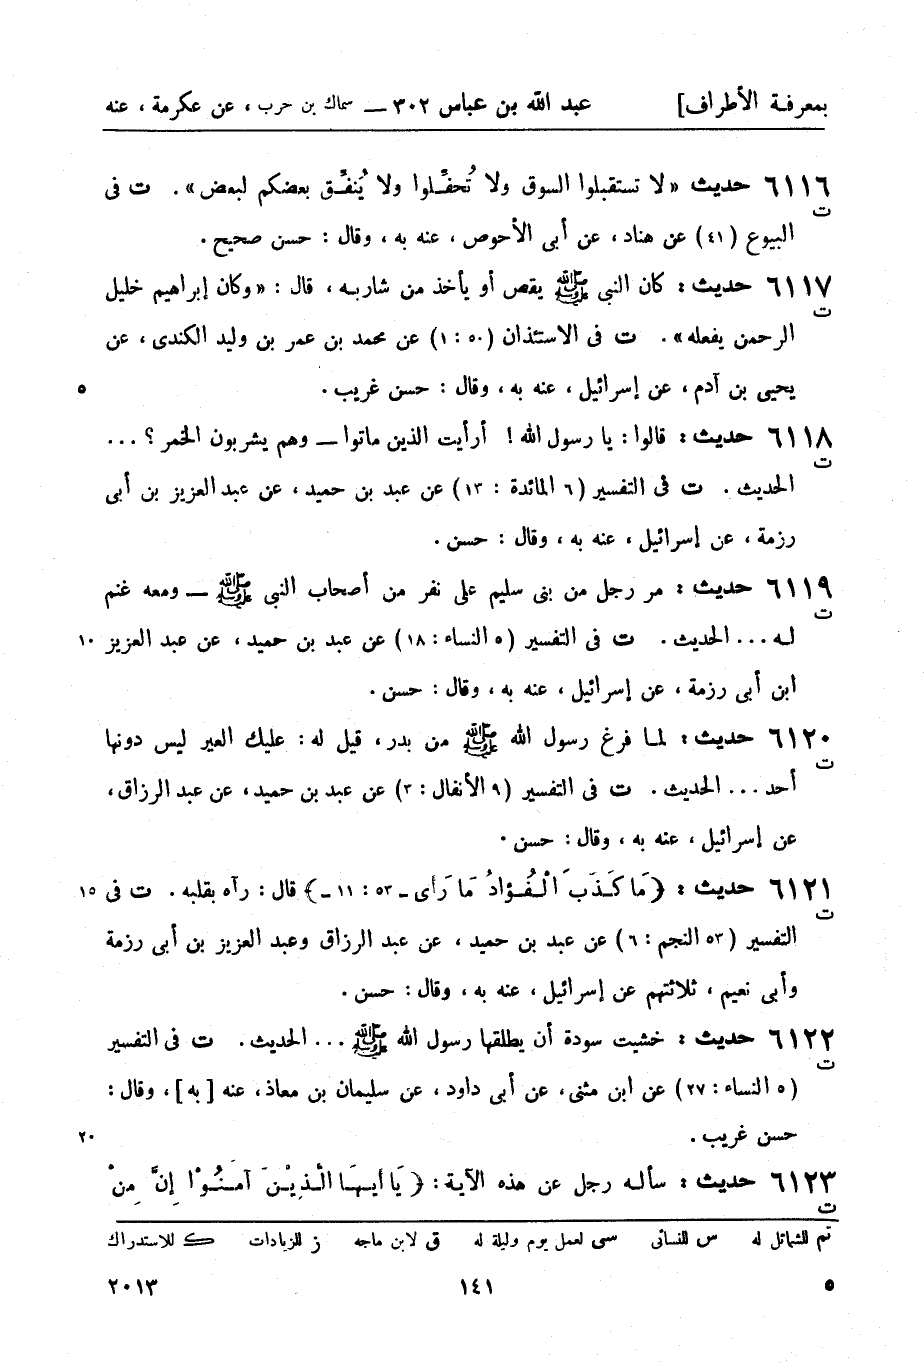 بمعرفة الأطراف] عبد الله بن عباس ٣٠٢ ــ سماك بن حرب ، عن عكرمة ، عنه
٦١١٦ حديث «لا تستقبلوا السوق ولا تُحفِّلوا ولا يُنفِّق بعضكم لبعض». ت فى
ت
البيوع (٤١) عن هناد، عن أبى الأحوص، عنه به، وقال: حسن صحيح.
٦١١٧ حديث: كان النبى ﷺ يقص أو يأخذ من شاربه، قال: «وكان إبراهيم خليل
ت
الرحمن يفعله». ت فى الاستئذان (٥٠: ١) عن محمد بن عمر بن وليد الكندى، عن
يحيى بن آدم، عن إسرائيل، عنه به، وقال: حسن غريب. ٥
٦١١٨ حديث: قالوا: يا رسول الله! أرأيت الذين ماتوا ــ وهم يشربون الخمر؟ ...
ت
الحديث. ت فى التفسير (٦ المائدة: ١٣) عن عبد بن حميد، عن عبد العزيز بن أبى
رزمة، عن إسرائيل، عنه به، وقال: حسن.
٦١١٩ حديث: مر رجل من بنى سليم على نفر من أصحاب النبى ﷺ ــ ومعه غنم
ت
له... الحديث. ت فى التفسير (٥ النساء: ١٨) عن عبد بن حميد، عن عبد العزيز ١٠
ابن أبى رزمة، عن إسرائيل، عنه به، وقال: حسن.
٦١٢٠ حديث: لما فرغ رسول الله ﷺ من بدر، قيل له: عليك العير ليس دونها
ت
أحد... الحديث. ت فى التفسير (٩ الأنفال: ٣) عن عبد بن حميد، عن عبد الرزاق،
عن إسرائيل، عنه به، وقال: حسن.
٦١٢١ حديث: {مَا كَذَبَ الْفُؤَادُ مَا رَأى ـ ٥٣: ١١ ـ} قال: رآه بقلبه. ت فى ١٥
ت
التفسير (٥٣ النجم: ٦) عن عبد بن حميد، عن عبد الرزاق وعبد العزيز بن أبى رزمة
وأبى نعيم، ثلاثتهم عن إسرائيل، عنه به، وقال: حسن.
٦١٢٢ حديث: خشيت سودة أن يطلقها رسول الله ﷺ ... الحديث. ت فى التفسير
ت
(٥ النساء: ٢٧) عن ابن مثنى، عن أبى داود، عن سليمان بن معاذ، عنه [به]، وقال:
حسن غريب. ٢٠
٦١٢٣ حديث: سأله رجل عن هذه الآية: {يَا أيهَا الَّذِيْنَ آمَنُوْا إِنَّ مِنْ
ت
تم للشمائل له س للنسائى سى لعمل يوم وليلة له ق لابن ماجه ز للزيادات ك للاستدراك
٥ ١٤١ ٢٠١٣